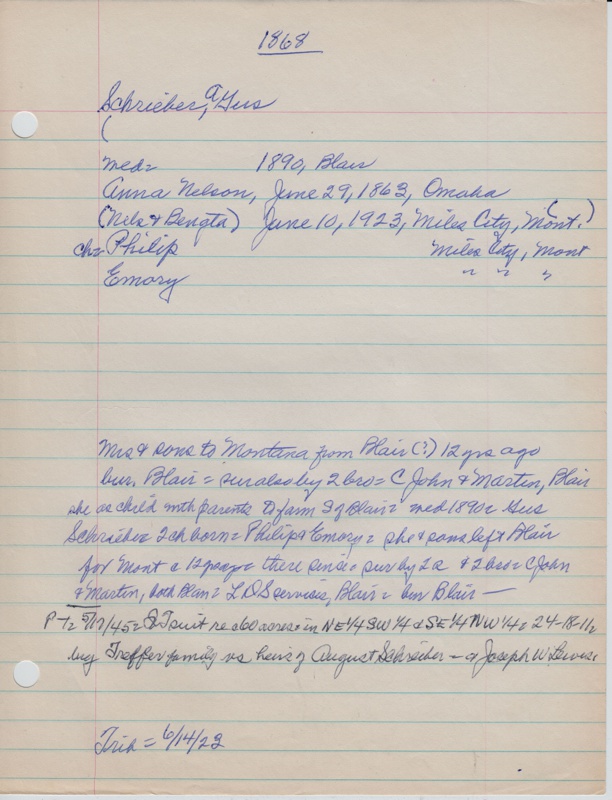 1868
Schrieber, A Gus
(
med= 1890, Blair
Anna Nelson, June 29, 1863, Omaha
(Nels & Bengta) June 10, 1923, Miles City, Mont. ( )
ch= Philip Miles City, Mont
Emory " " "
Mrs & sons to Montana from Blair (?) 12 yrs ago
bur. Blair = sur also by 2 bro = C John & Martin, Blair
she as child with parents to farm S of Blair = med 1890 = Gus
Schrieber = 2 ch born = Philip & Emory = she & sons left Blair
for Mont c 12 yrs ago = there since = sur by 2 s & 2 bro = C John
& Martin, both Blair = LDS servisis, Blair = bur Blair —
P-T= 5/17/45 = QT suit re c60 acres = in NE 1/4 SW 1/4 & SE 1/4 NW 1/4 = 24-18-11=
by Treffer family vs heirs of August Schreiber — & Joseph W. Lewis=
Trib = 6/14/23